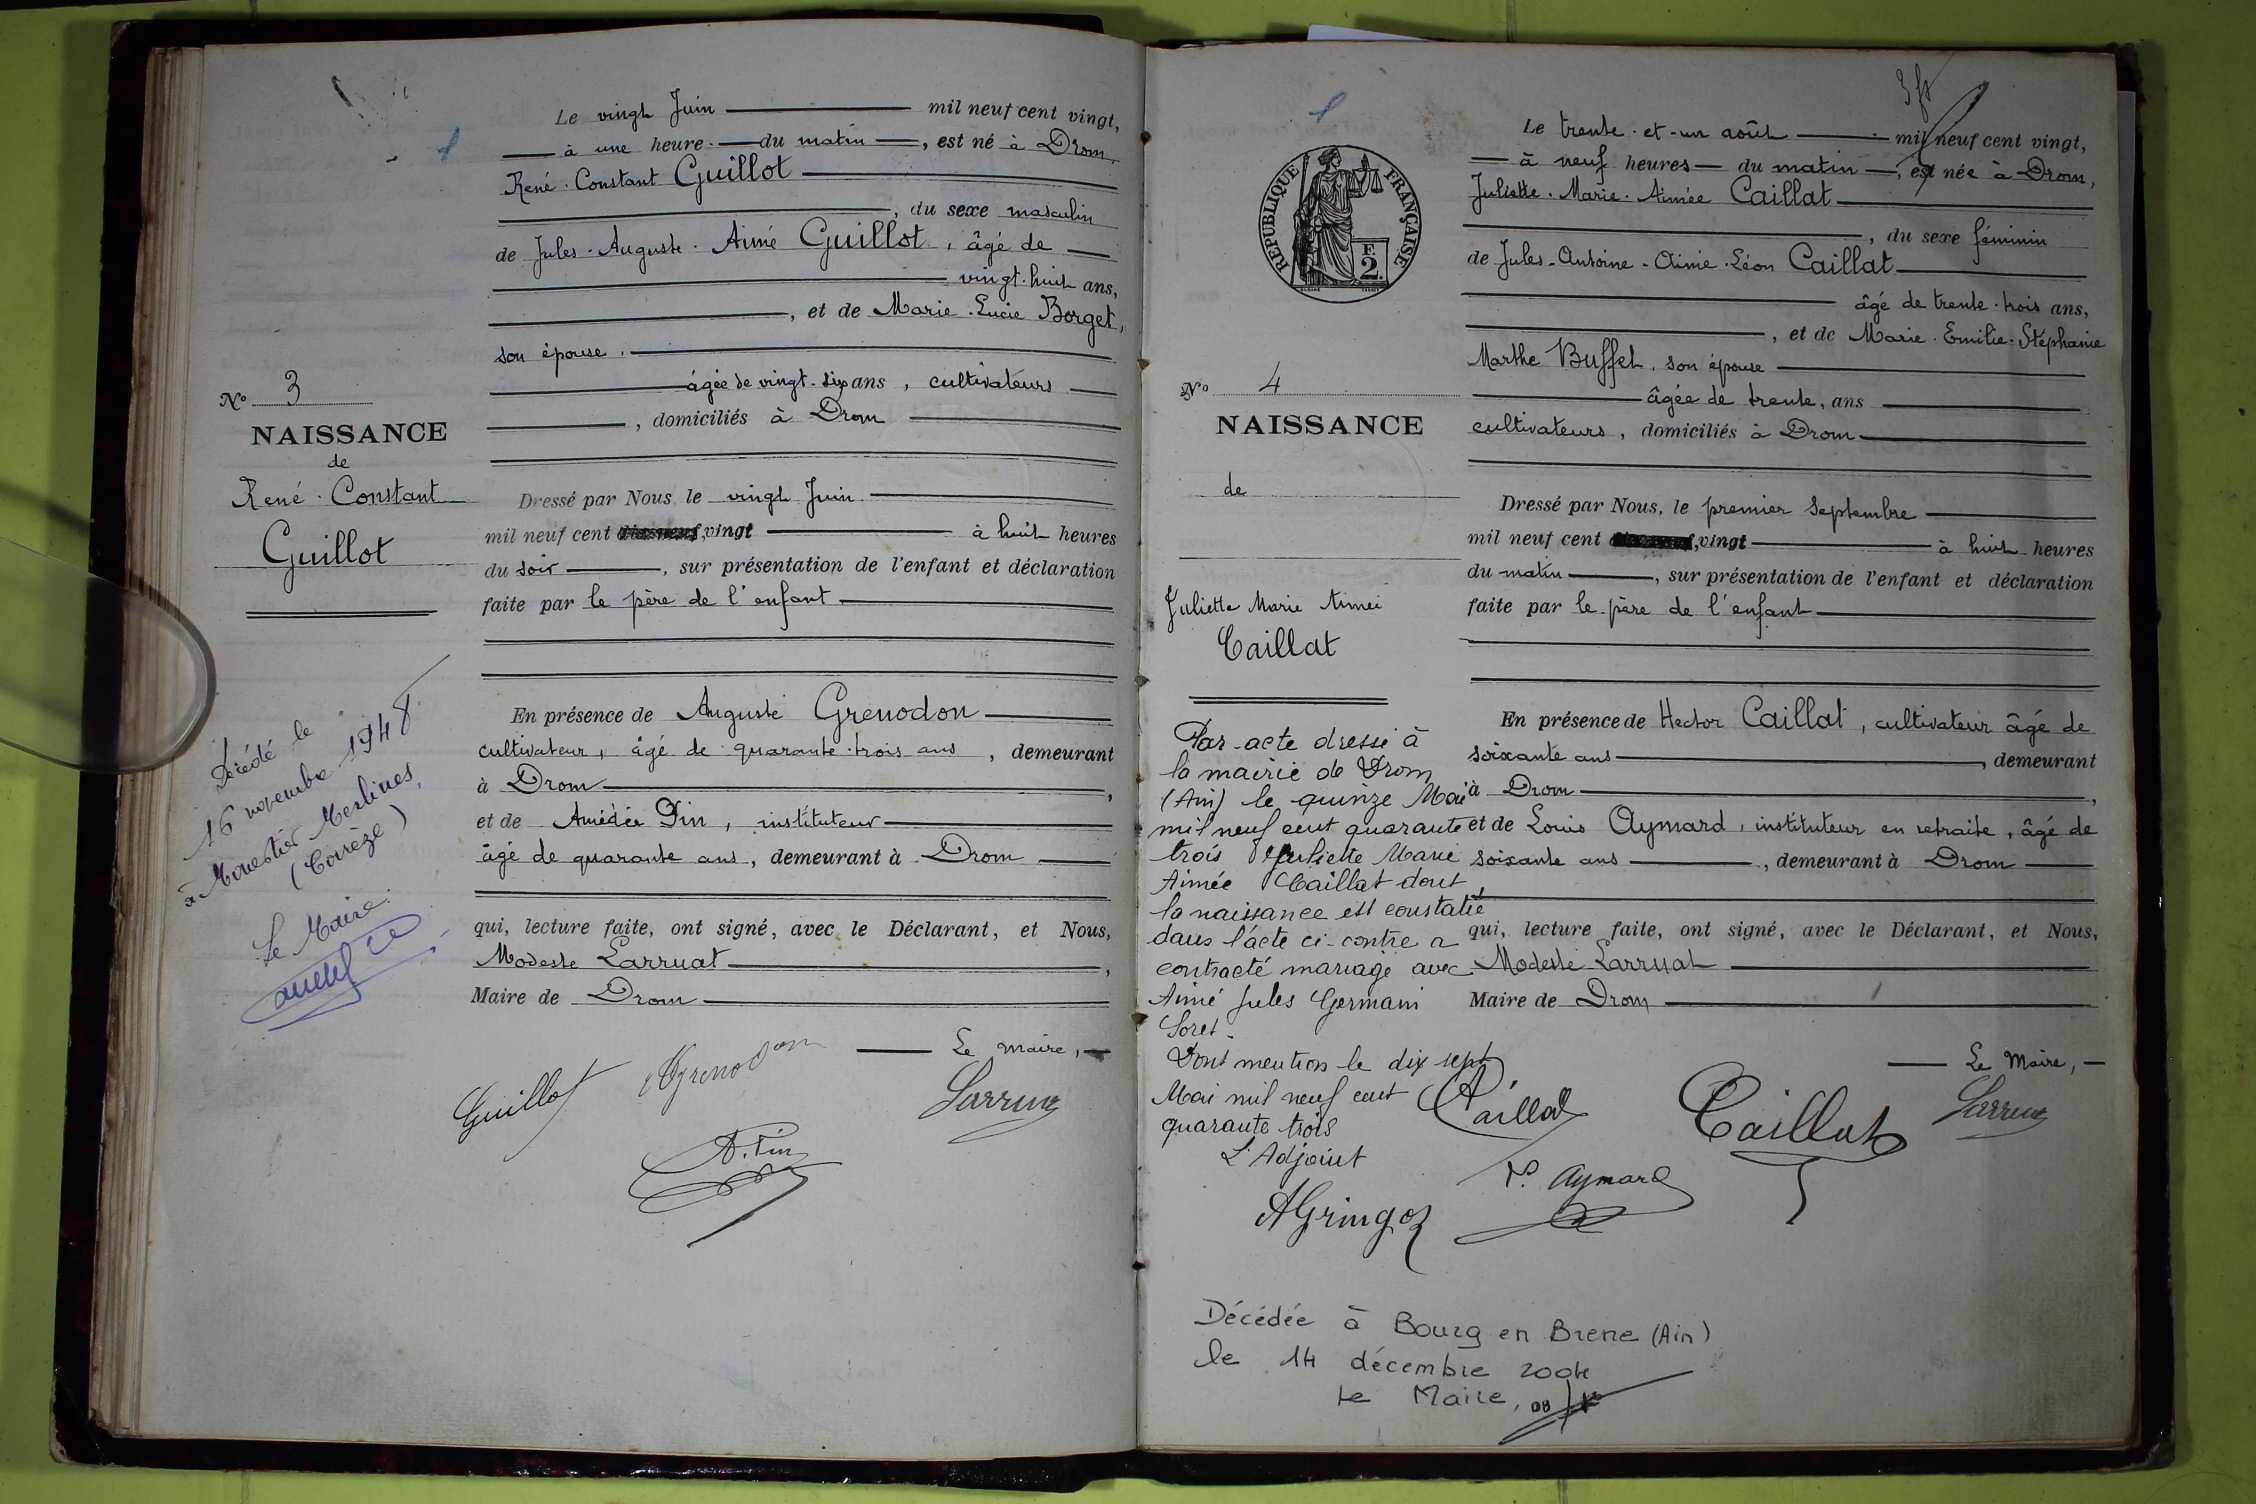 Le vingt Juin mil neuf cent vingt,
à une heure du matin, est né à Drom,
René. Constant Guillot
, du sexe masculin
de Jules. Auguste. Aimé Guillot, âgé de
vingt. huit ans,
, et de Marie. Lucie Borget,
son épouse.
âgée de vingt-six ans, cultivateurs
, domiciliés à Drom
N° 3
NAISSANCE
de
René. Constant
Guillot
Dressé par Nous, le vingt Juin
mil neuf cent vingt à huit heures
du soir, sur présentation de l'enfant et déclaration
faite par le père de l'enfant
En présence de Auguste Grenodon
cultivateur, âgé de quarante. trois ans, demeurant
à Drom,
et de Amédée Pin, instituteur
âgé de quarante ans, demeurant à Drom
qui, lecture faite, ont signé, avec le Déclarant, et Nous,
Modeste Larruat,
Maire de Drom
Le maire,
Guillot
Grenodon
Larruat
A. Pin
Décédé le
16 novembre 1948
à Monestier Merlines,
(Corrèze)
Le Maire.
RÉPUBLIQUE FRANÇAISE
F.
2.
Le trente. et. un août mil neuf cent vingt,
à neuf heures du matin, est née à Drom,
Juliette. Marie. Aimée Caillat
, du sexe féminin
de Jules. Antoine. Aimé. Léon Caillat
âgé de trente. trois ans,
, et de Marie. Emilie. Stéphanie
Marthe Buffet, son épouse
âgée de trente, ans
cultivateurs, domiciliés à Drom
N° 4
NAISSANCE
de
Juliette Marie Aimée
Caillat
Dressé par Nous, le premier Septembre
mil neuf cent vingt à huit heures
du matin, sur présentation de l'enfant et déclaration
faite par le père de l'enfant
En présence de Hector Caillat, cultivateur âgé de
soixante ans, demeurant
à Drom,
et de Louis Aymard, instituteur en retraite, âgé de
soixante ans, demeurant à Drom
qui, lecture faite, ont signé, avec le Déclarant, et Nous,
Modeste Larruat
Maire de Drom
Le Maire,
Caillat
Caillat
Larruat
Aymard
Par acte dressé à
la mairie de Drom
(Ain) le quinze Mai
mil neuf cent quarante
trois Juliette Marie
Aimée Caillat dont
la naissance est constatée
dans l'acte ci-contre a
contracté mariage avec
Aimé Jules Germain
Soret.
Dont mention le dix sept
Mai mil neuf cent
quarante trois
L'Adjoint
AGringoz
Décédée à Bourg en Bresse (Ain)
le 14 décembre 2004
Le Maire,